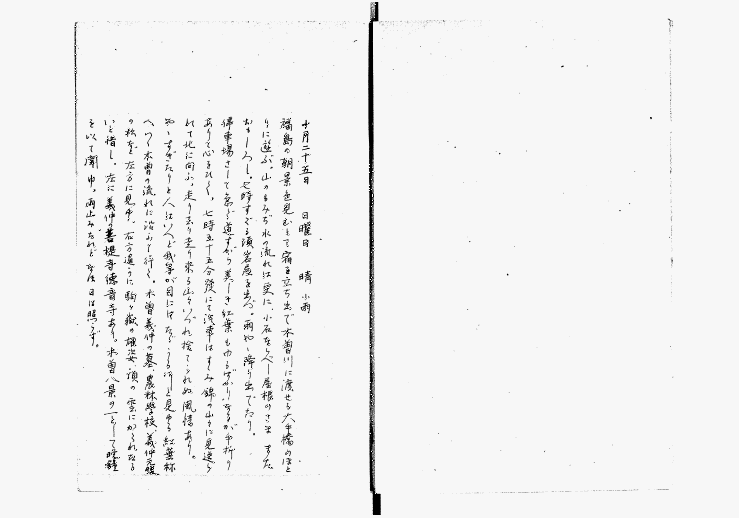 十月二十五日　日曜日　晴　小雨
福島の朝景色見むとて宿を立ち出で木曽川に渡せる大手橋のほと
りに遊ぶ。山のもみぢ水の流れは更に、小石をのべし屋根のさま　また
おもしろし。七時すぐる頃宿屋を出づ。雨やゝ降り出でたり。
停車場さして急ぐ道すがら美しき紅葉もゆるばかりなるが手折り
ありて心をひく。七時五十五分発にて汽車はすゝみ錦の山々に見送ら
れて北に向ふ。走り去り走り来る山々いづれ捨てられぬ風情あり。
やゝすぎたりと人はいへど我等が目には　見ゆる紅葉林
へつゝ木曽の流れに沿ふて行く。木曽義仲の墓、農林学校、義仲元服
の松を左方に見ゆ。右方遥かに駒ヶ嶽の雄姿、頂の雪にかくれたる
いと惜し。左に義仲の菩提寺徳音寺あり。木曽八景の一として晩鐘
を以て聞ゆ。雨止みたれどなほ日は照らず。